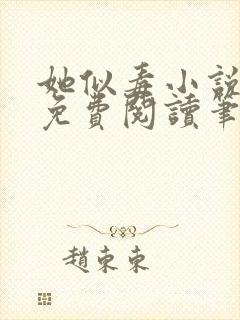 她似毒小說
免費閱讀筆
趙東東